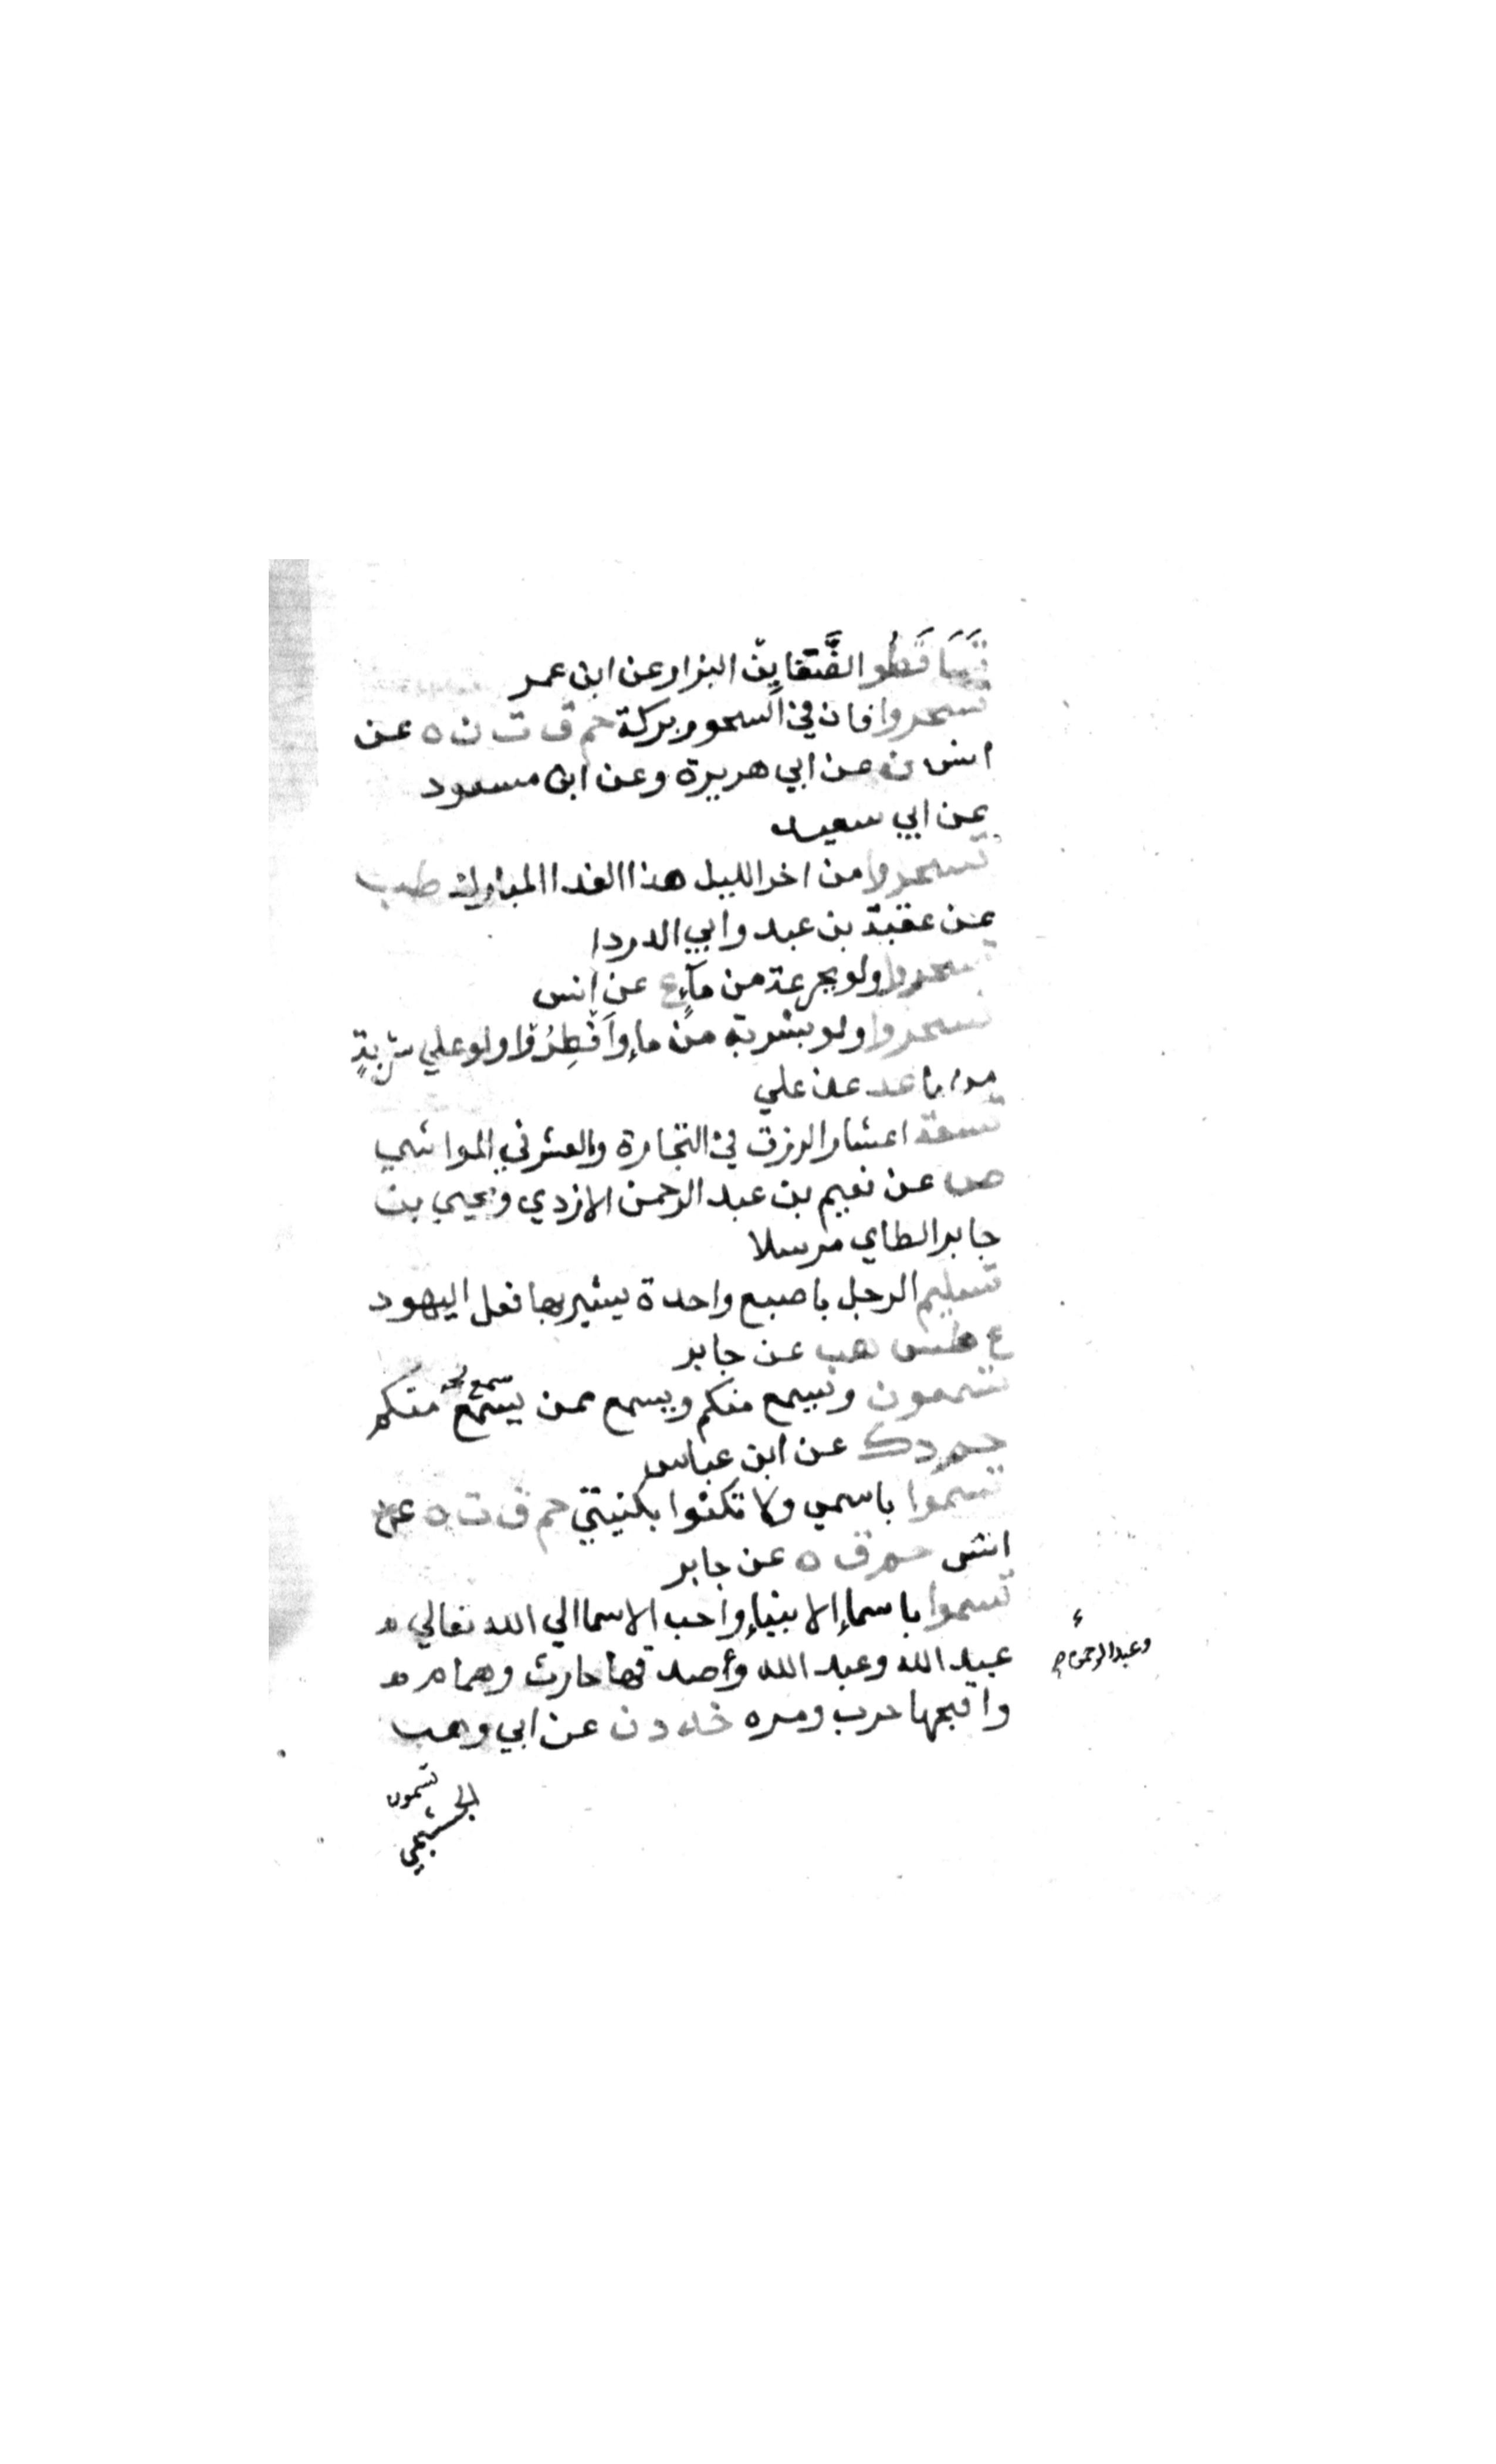 تَسَاقَطُوا الضَّغَاين البزار عن ابن عمر
تسحروا فان في السحور بركة حم ق ت ن ه عن
انس ن عن ابي هريرة وعن ابن مسعود
عن ابي سعيد
تسحروا من اخر الليل هذا الغدا المبارك طب
عن عقبة بن عبد وابي الدردا
تسحروا ولو بجرعة من مآء ع عن انس
تسحروا ولو بشربة من ماء وَاَفْطِرُوْا ولو علي شربةٍ
من ماء عد عن علي
تسعة اعشار الرزق في التجارة والعشر في المواشي
ص عن نعيم بن عبد الرحمن الازدي ويحيي بن
جابر الطاي مرسلا
تسليم الرجل باصبع واحدة يشير بها فعل اليهود
ع طس هب عن جابر
تسمعون ويسمع منكم ويسمع ممن يسمع منكم
حم د ك عن ابن عباس
تسمَّوا باسمي ولا تكنوا بكنيتي حم ق ت ه عن
انس حم ق ه عن جابر
تسموا باسماء الانبياء واحب الاسما الي الله تعالي
عبد الله وعبد الله وأصدقها حارث وهمام
وعبد الرحمن
واقبحها حرب ومره خد د ن عن ابي وهب
الجشمي
تسمون